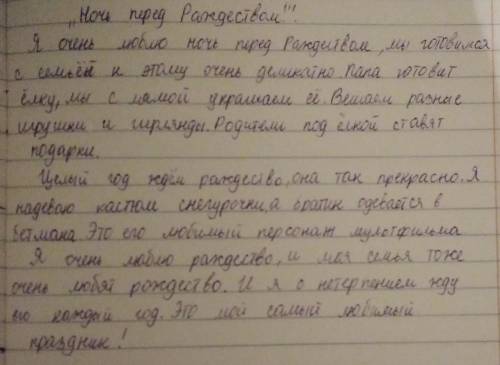 „Ночь перед Рождеством"!!.
Я очень люблю ночь перед Рождеством, мы готовимся
с семьёй к этому очень деликатно. Папа готовит
ёлку, мы с мамой украшаем её. Вешаем разные
игрушки и гирлянды. Родители под ёлкой ставят
подарки.
Целый год ждём рождество, она так прекрасно. Я
надеваю кастюм снегурочки, а братик одевается в
Бетмана. Это его любимый персонаж мультфильма
Я очень люблю рождество, и моя семья тоже
очень любят рождество. И я с нетерпением жду
его каждый год. Это мой самый любимый
праздник!